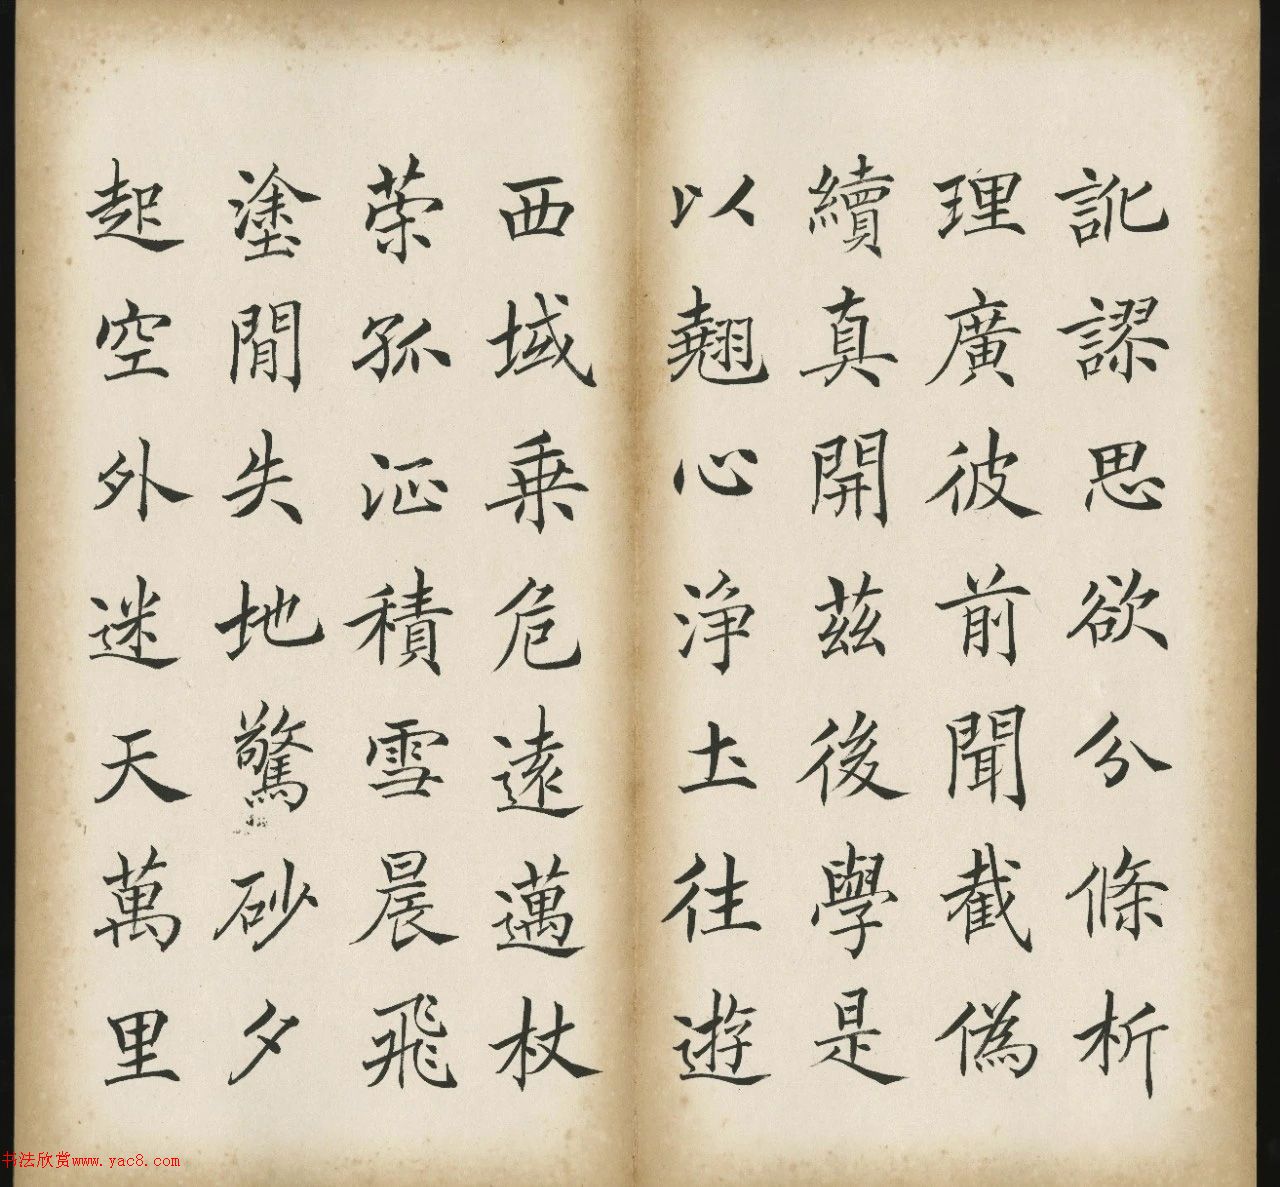 訛謬思欲分條析
理廣彼前聞截偽
續真開茲後學是
以翹心淨土往遊
西域乗危遠邁杖
荣孤征積雪晨飛
塗間失地驚砂夕
起空外迷天萬里
书法欣赏www.yac8.com